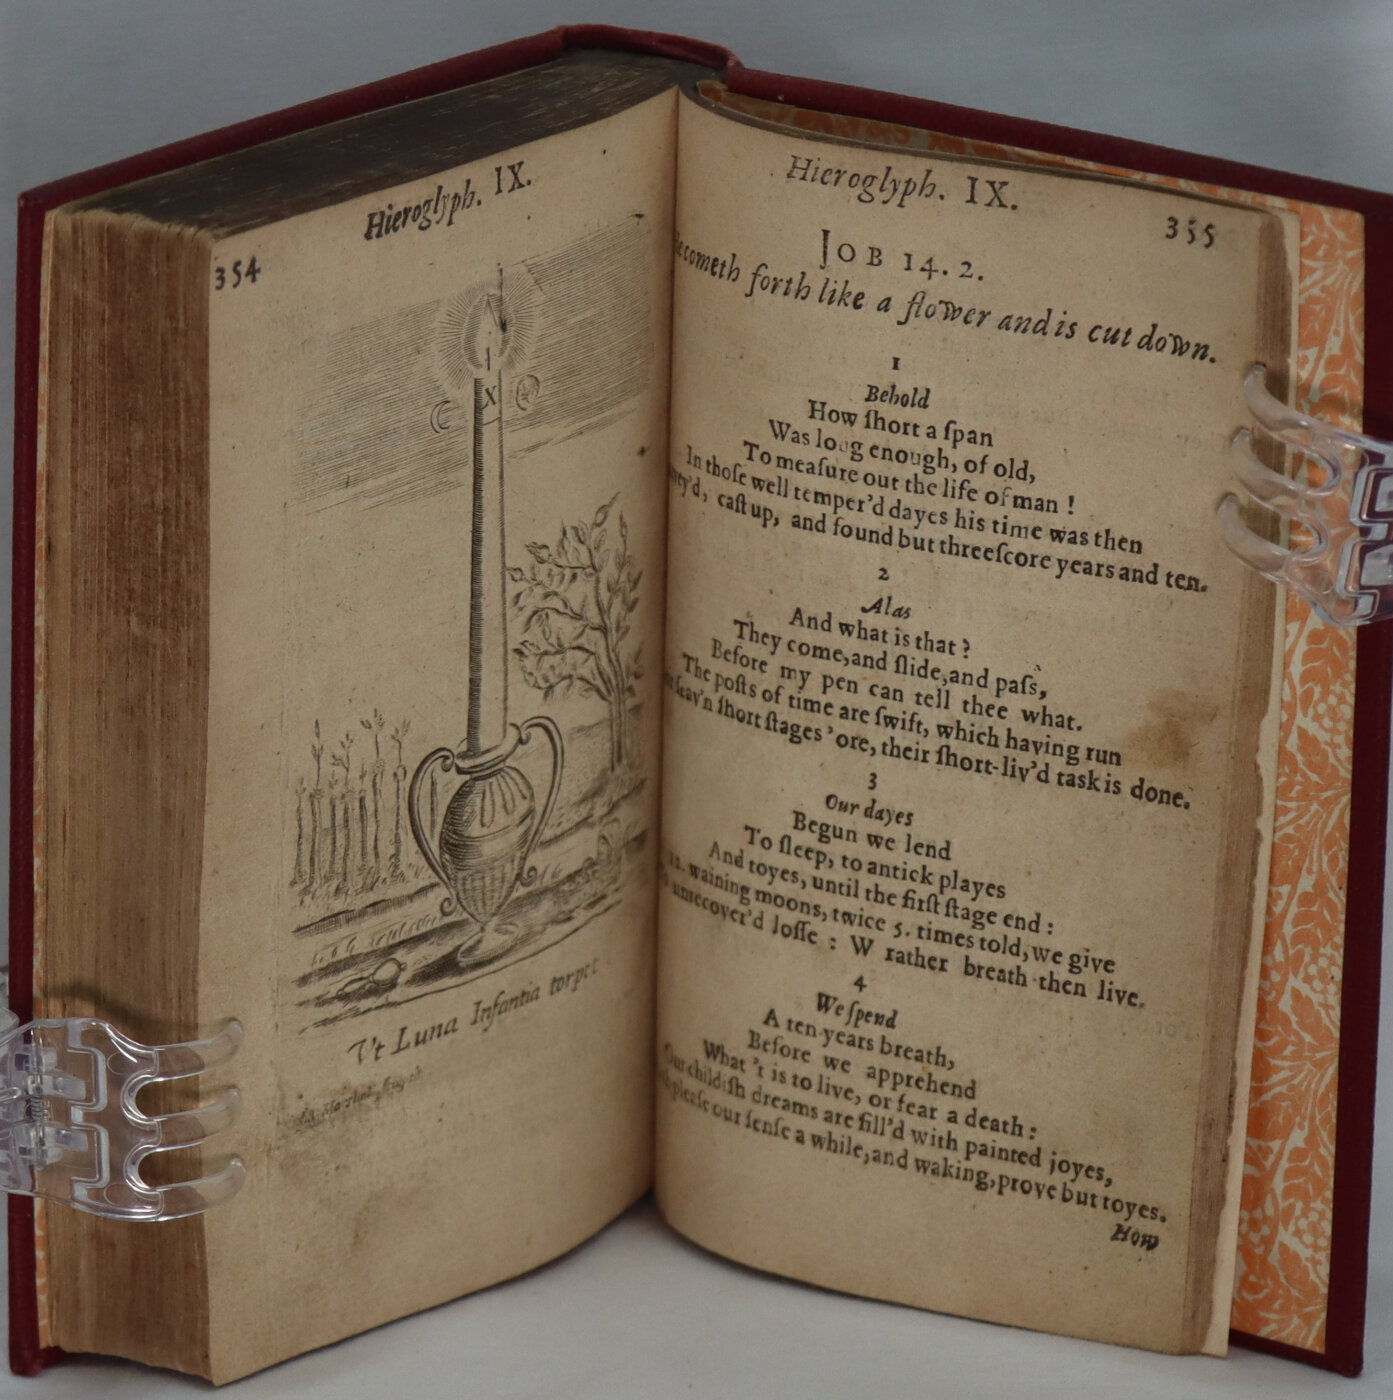 Hieroglyph. IX.
354
X
Vt Luna Infantia torpet
Hieroglyph. IX.
355
JOB 14. 2.
cometh forth like a flower and is cut down.
1
Behold
How ſhort a ſpan
Was long enough, of old,
To meaſure out the life of man !
In thoſe well temper'd dayes his time was then
caſt up, and found but threeſcore years and ten.
2
Alas
And what is that ?
They come,and ſlide,and paſs,
Before my pen can tell thee what.
The poſts of time are ſwift, which having run
ſeav'n ſhort ſtages 'ore, their ſhort-liv'd task is done.
3
Our dayes
Begun we lend
To ſleep, to antick playes
And toyes, until the firſt ſtage end :
12. waining moons, twice 5. times told, we give
unrecover'd loſſe : W rather breath then live.
4
We ſpend
A ten years breath,
Before we apprehend
What 't is to live, or fear a death :
Our childiſh dreams are fill'd with painted joyes,
pleaſe our ſenſe a while,and waking,prove but toyes.
How